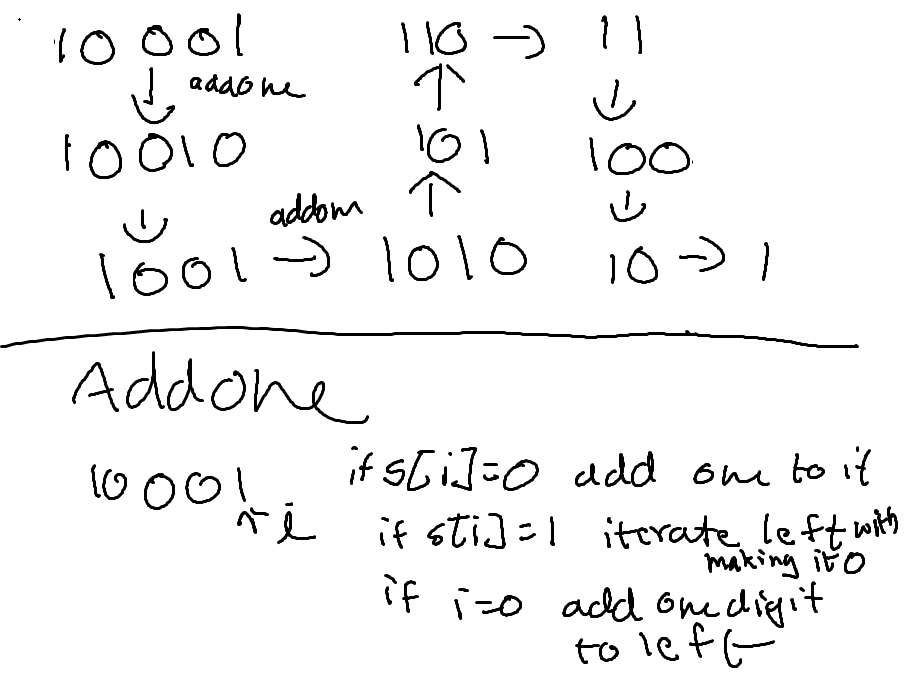 10001 110 → 11
↓ addone ↑ ↓
10010 101 100
↓ addon ↑ ↓
1001 → 1010 10 → 1
Addone
10001 if s[i]=0 add one to it
↑ i if s[i]=1 iterate left with
making it 0
if i=0 add one digit
to left